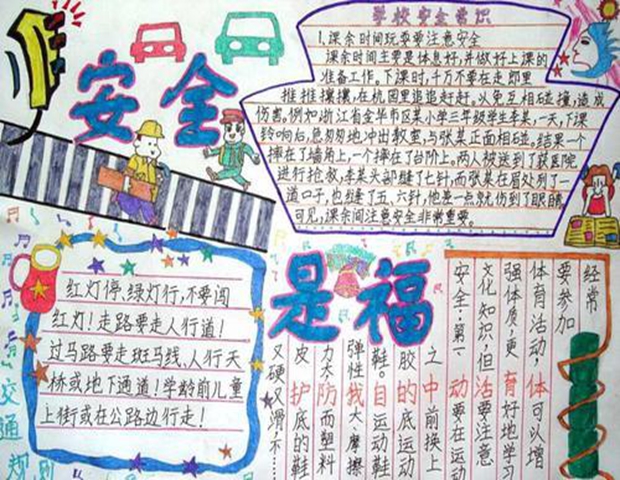 安全
学校安全常识
1.课余时间玩耍要注意安全
课余时间主要是休息好,并做好上课的
准备工作。下课时,千万不要在走郎里
推推攘攘,在机园里追追赶赶。以免互相碰撞,造成
伤害。例如浙江省金华市区某小学三年级学生李某,一天,下课
铃响后,急匆匆地冲出教室,与张某正面相碰。结果一个
摔在了墙角上,一个摔在了台阶上。两人被送到了获医院
进行抢救,李某头部缝了七针,而张某在眉处列了一
道口子,也缝了五、六针,他差一点就伤到了眼睛
可见,课余间注意安全非常重要。
是福
红灯停、绿灯行,不要闯
红灯!走路要走人行道!
过马路要走斑马线、人行天
桥或地下通道!学龄前儿童
上街或在公路边行走!
交通规则
经常
要参加
体育活动,体可以增
强体质,更育好地学习
文化知识,但活要注意
安全第一动要在运动
之中前换上
胶的底运动
鞋。自运动鞋
弹性我大、摩擦
力大防而塑料
皮护底的鞋
又硬又滑,不……